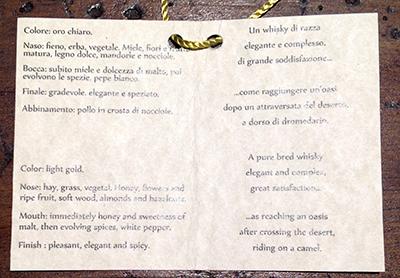 Colore: oro chiaro.
Naso: fieno, erba, vegetale. Miele, fiori e frutta
matura, legno dolce, mandorle e nocciole.
Bocca: subito miele e dolcezza di malto, poi
evolvono le spezie, pepe bianco.
Finale: gradevole, elegante e speziato.
Abbinamento: pollo in crosta di nocciole.
Color: light gold.
Nose: hay, grass, vegetal. Honey, flowers and
ripe fruit, soft wood, almonds and hazelnuts.
Mouth: immediately honey and sweetness of
malt, then evolving spices, white pepper.
Finish : pleasant, elegant and spicy.
Un whisky di razza
elegante e complesso,
di grande soddisfazione...
...come raggiungere un'oasi
dopo un attraversata del deserto,
a dorso di dromedario.
A pure bred whisky
elegant and complex,
great satisfaction...
...as reaching an oasis
after crossing the desert,
riding on a camel.